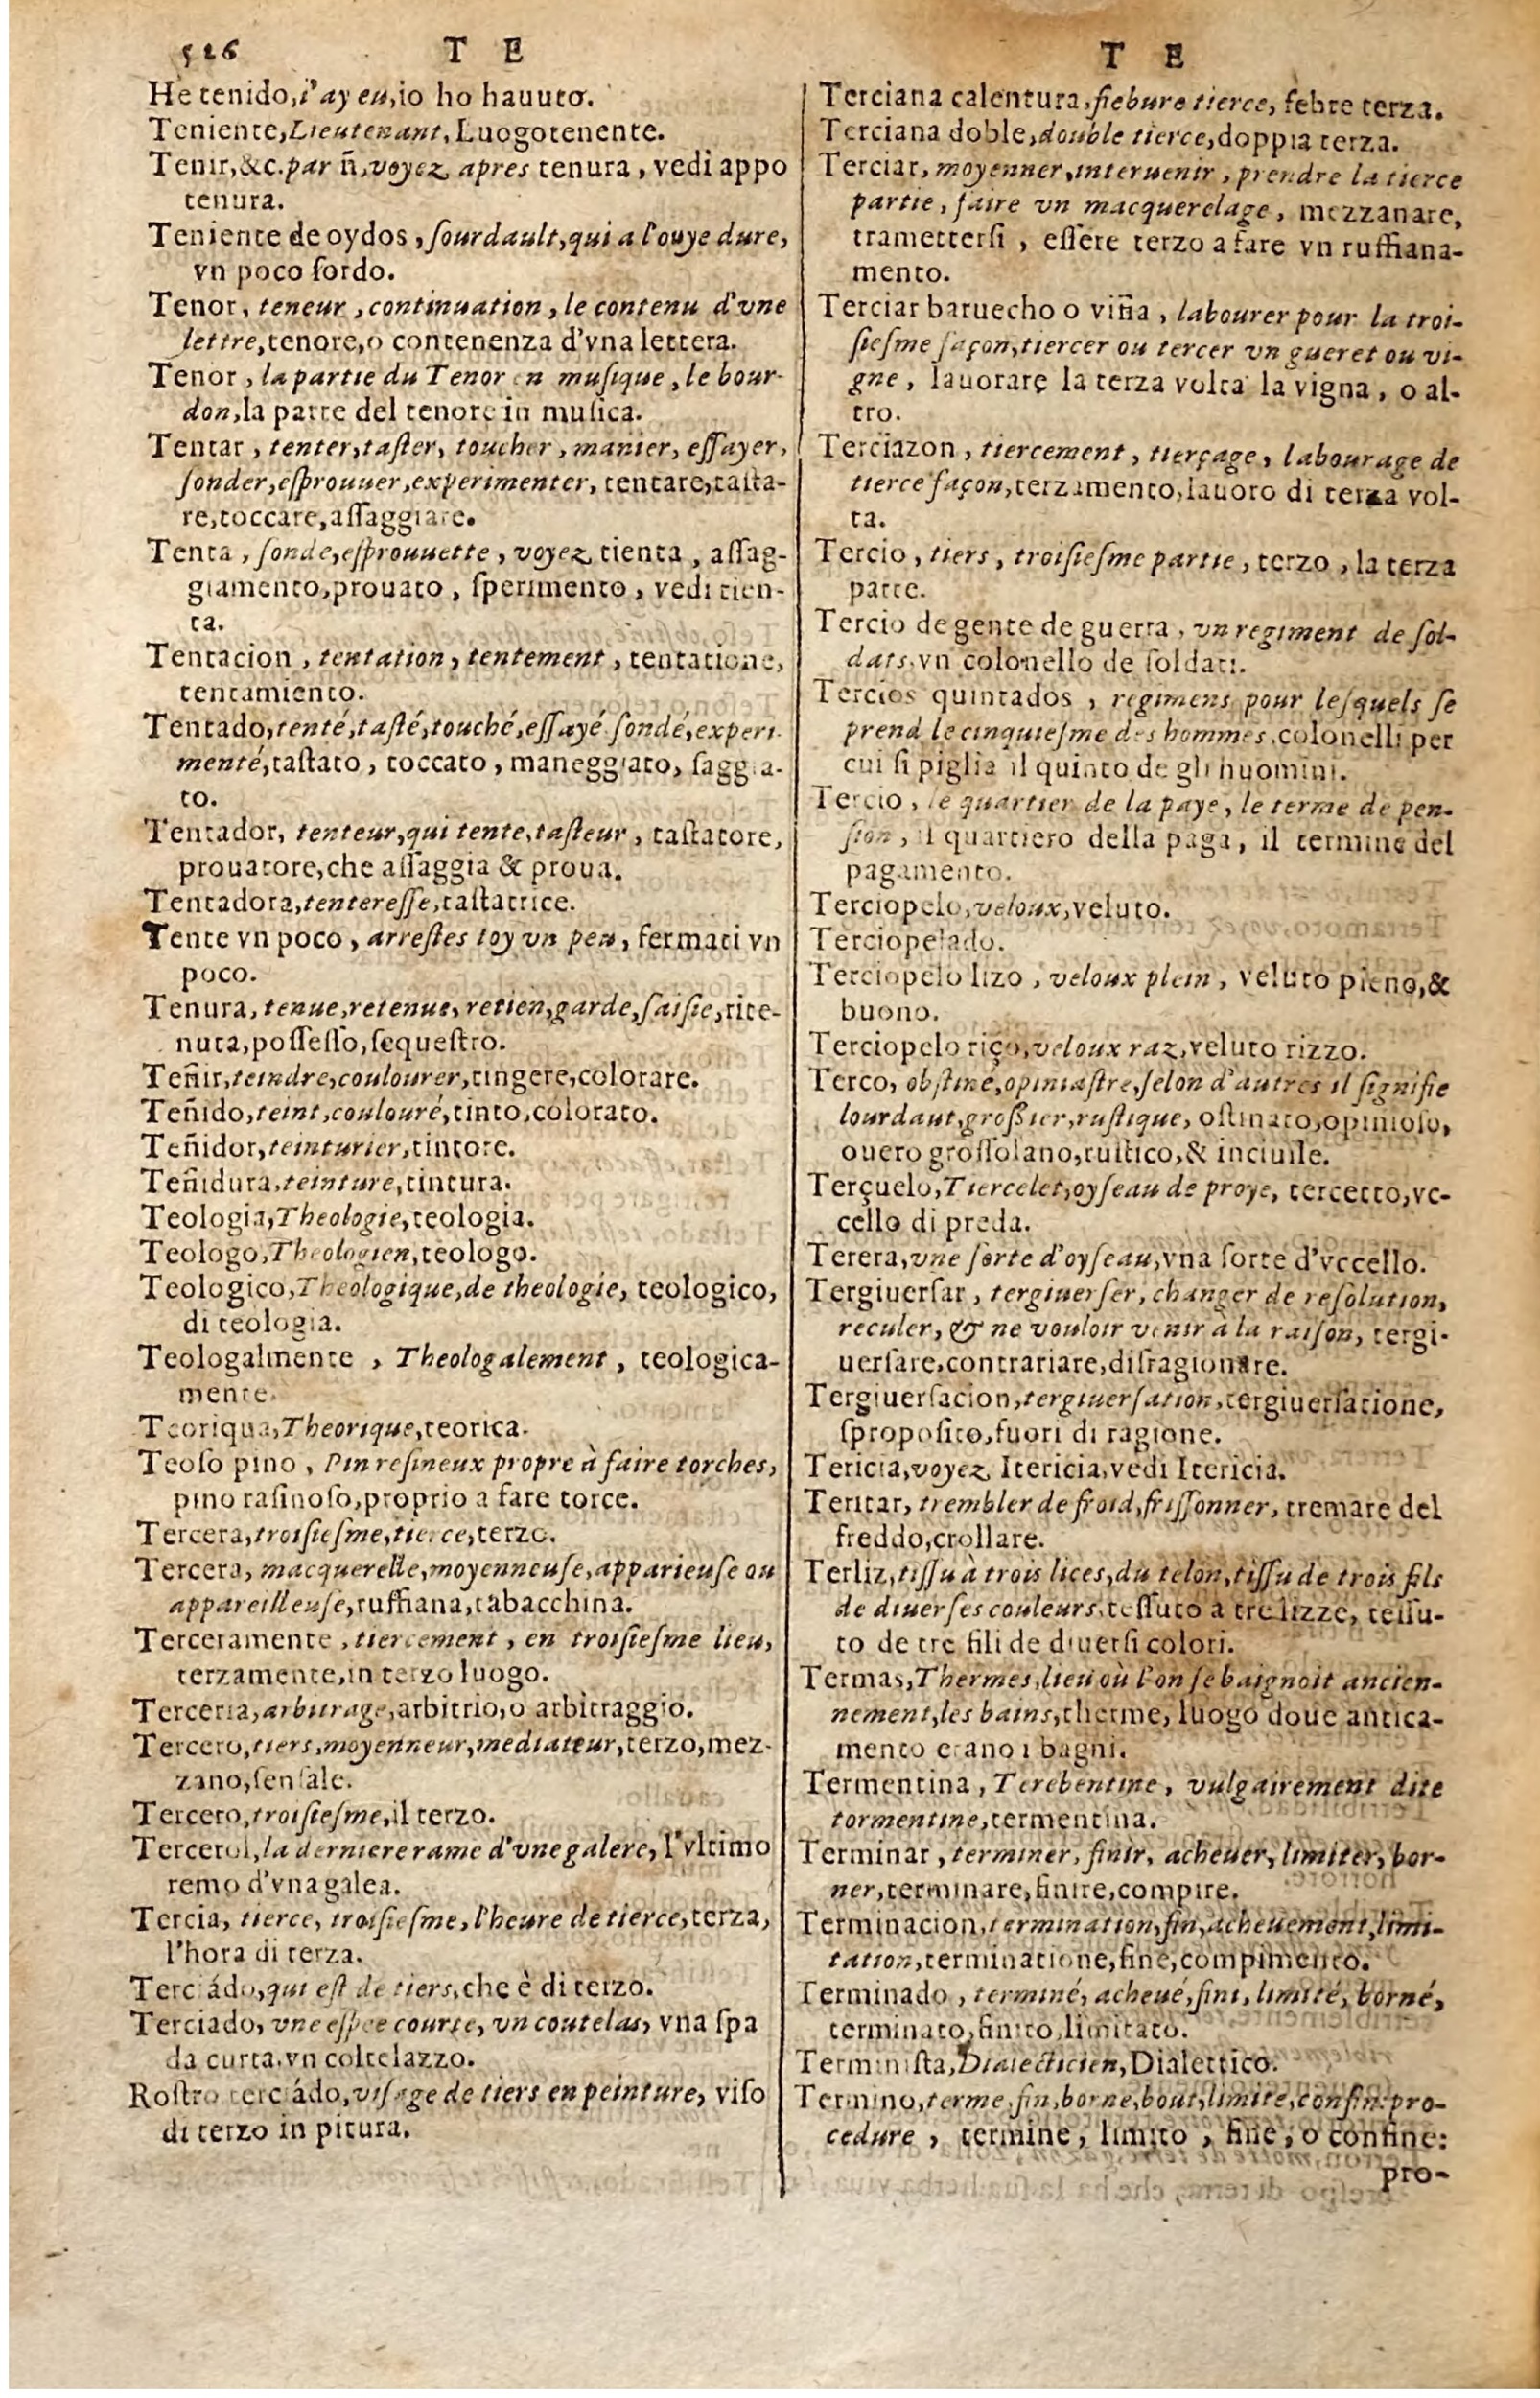 526 T E
He tenido, i'ay eu, io ho hauuto.
Teniente, Lieutenant, Luogotenente.
Tenir, &c. par ñ, voyez apres tenura, vedi appo
tenura.
Teniente de oydos, ſourdault, qui a l'ouye dure,
vn poco ſordo.
Tenor, teneur, continuation, le contenu d'vne
lettre, tenore, o contenenza d'vna lettera.
Tenor, la partie du Tenor en muſique, le bour-
don, la parte del tenore in muſica.
Tentar, tenter, taſter, toucher, manier, eſſayer,
ſonder, eſprouuer, experimenter, tentare, taſta-
re, toccare, aſſaggiare.
Tenta, ſonde, eſprouuette, voyez tienta, aſſag-
giamento, prouato, ſperimento, vedi tien-
ta.
Tentacion, tentation, tentement, tentatione,
tentamiento.
Tentado, tenté, taſté, touché, eſſayé ſondé, experi-
menté, taſtato, toccato, maneggiato, ſaggia-
to.
Tentador, tenteur, qui tente, taſteur, taſtatore,
prouatore, che aſſaggia & proua.
Tentadora, tentereſſe, taſtatrice.
Tente vn poco, arreſtes toy vn peu, fermati vn
poco.
Tenura, tenue, retenue, retien, garde, ſaiſie, rite-
nuta, poſſeſſo, ſequeſtro.
Teñir, teindre, coulourer, tingere, colorare.
Teñido, teint, coulouré, tinto, colorato.
Teñidor, teinturier, tintore.
Teñidura, teinture, tintura.
Teologia, Theologie, teologia.
Teologo, Theologien, teologo.
Teologico, Theologique, de theologie, teologico,
di teologia.
Teologalmente, Theologalement, teologica-
mente.
Teoriqua, Theorique, teorica.
Teoſo pino, Pin reſineux propre à faire torches,
pino raſinoſo, proprio a fare torce.
Tercera, troiſieſme, tierce, terzo.
Tercera, macquerelle, moyenneuſe, apparieuſe ou
appareilleuſe, ruffiana, tabacchina.
Terceramente, tiercement, en troiſieſme lieu,
terzamente, in terzo luogo.
Terceria, arbitrage, arbitrio, o arbitraggio.
Tercero, tiers, moyenneur, mediateur, terzo, mez-
zano, ſenſale.
Tercero, troiſieſme, il terzo.
Tercerol, la derniere rame d'vne galere, l'vltimo
remo d'vna galea.
Tercia, tierce, troiſieſme, l'heure de tierce, terza,
l'hora di terza.
Terciádo, qui eſt de tiers, che è di terzo.
Terciado, vne eſpee courte, vn coutelas, vna ſpa
da curta, vn coltelazzo.
Roſtro terciádo, viſage de tiers en peinture, viſo
di terzo in pitura.
T E
Terciana calentura, fiebure tierce, febre terza.
Terciana doble, double tierce, doppia terza.
Terciar, moyenner, interuenir, prendre la tierce
partie, faire vn macquerelage, mezzanare,
trametterſi, eſſere terzo a fare vn ruffiana-
mento.
Terciar baruecho o viña, labourer pour la troi-
ſieſme façon, tiercer ou tercer vn gueret ou vi-
gne, lauorare la terza volta la vigna, o al-
tro.
Terciazon, tiercement, tierçage, labourage de
tierce façon, terzamento, lauoro di terza vol-
ta.
Tercio, tiers, troiſieſme partie, terzo, la terza
parte.
Tercio de gente de guerra, vn regiment de ſol-
dats, vn colonello de ſoldati.
Tercios quintados, regimens pour leſquels ſe
prend le cinquieſme des hommes, colonelli per
cui ſi piglia il quinto de gli huomini.
Tercio, le quartier de la paye, le terme de pen-
ſion, il quartiero della paga, il termine del
pagamento.
Terciopelo, veloux, veluto.
Terciopelado.
Terciopelo lizo, veloux plein, veluto pieno, &
buono.
Terciopelo riço, veloux raz, veluto rizzo.
Terco, obſtiné, opiniaſtre, ſelon d'autres il ſignifie
lourdaut, groſſier, ruſtique, oſtinato, opinioſo,
ouero groſſolano, ruſtico, & inciuile.
Terçuelo, Tiercelet, oyſeau de proye, tercetto, vc-
cello di preda.
Terera, vne ſorte d'oyſeau, vna ſorte d'vccello.
Tergiuerſar, tergiuerſer, changer de reſolution,
reculer, & ne vouloir venir à la raiſon, tergi-
uerſare, contrariare, diſragionare.
Tergiuerſacion, tergiuerſation, tergiuerſatione,
ſpropoſito, fuori di ragione.
Tericia, voyez Itericia, vedi Itericia.
Teritar, trembler de froid, friſſonner, tremare del
freddo, crollare.
Terliz, tiſſu à trois lices, du telon, tiſſu de trois fils
de diuerſes couleurs, teſſuto a tre lizze, teſſu-
to de tre fili de diuerſi colori.
Termas, Thermes, lieu où l'on ſe baignoit ancien-
nement, les bains, therme, luogo doue antica-
mento erano i bagni.
Termentina, Terebentine, vulgairement dite
tormentine, termentina.
Terminar, terminer, finir, acheuer, limiter, bor-
ner, terminare, finire, compire.
Terminacion, termination, fin, acheuement, limi-
tation, terminatione, fine, compimento.
Terminado, terminé, acheué, fini, limité, borné,
terminato, finito, limitato.
Terminiſta, Dialecticien, Dialettico.
Termino, terme, fin, borne, bout, limite, confin: pro-
cedure, termine, limito, fine, o confine:
pro-